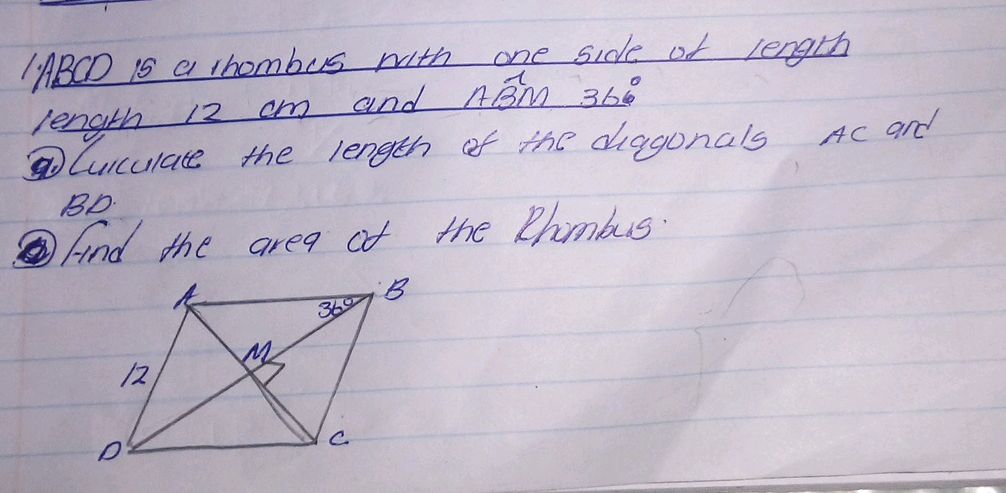 1. ABCD is a rhombus with one side of length
length 12 cm and AB̂M 36°
a. Calculate the length of the diagonals AC and
BD.
Find the area of the Rhombus.
A 36° B
M
12
D C